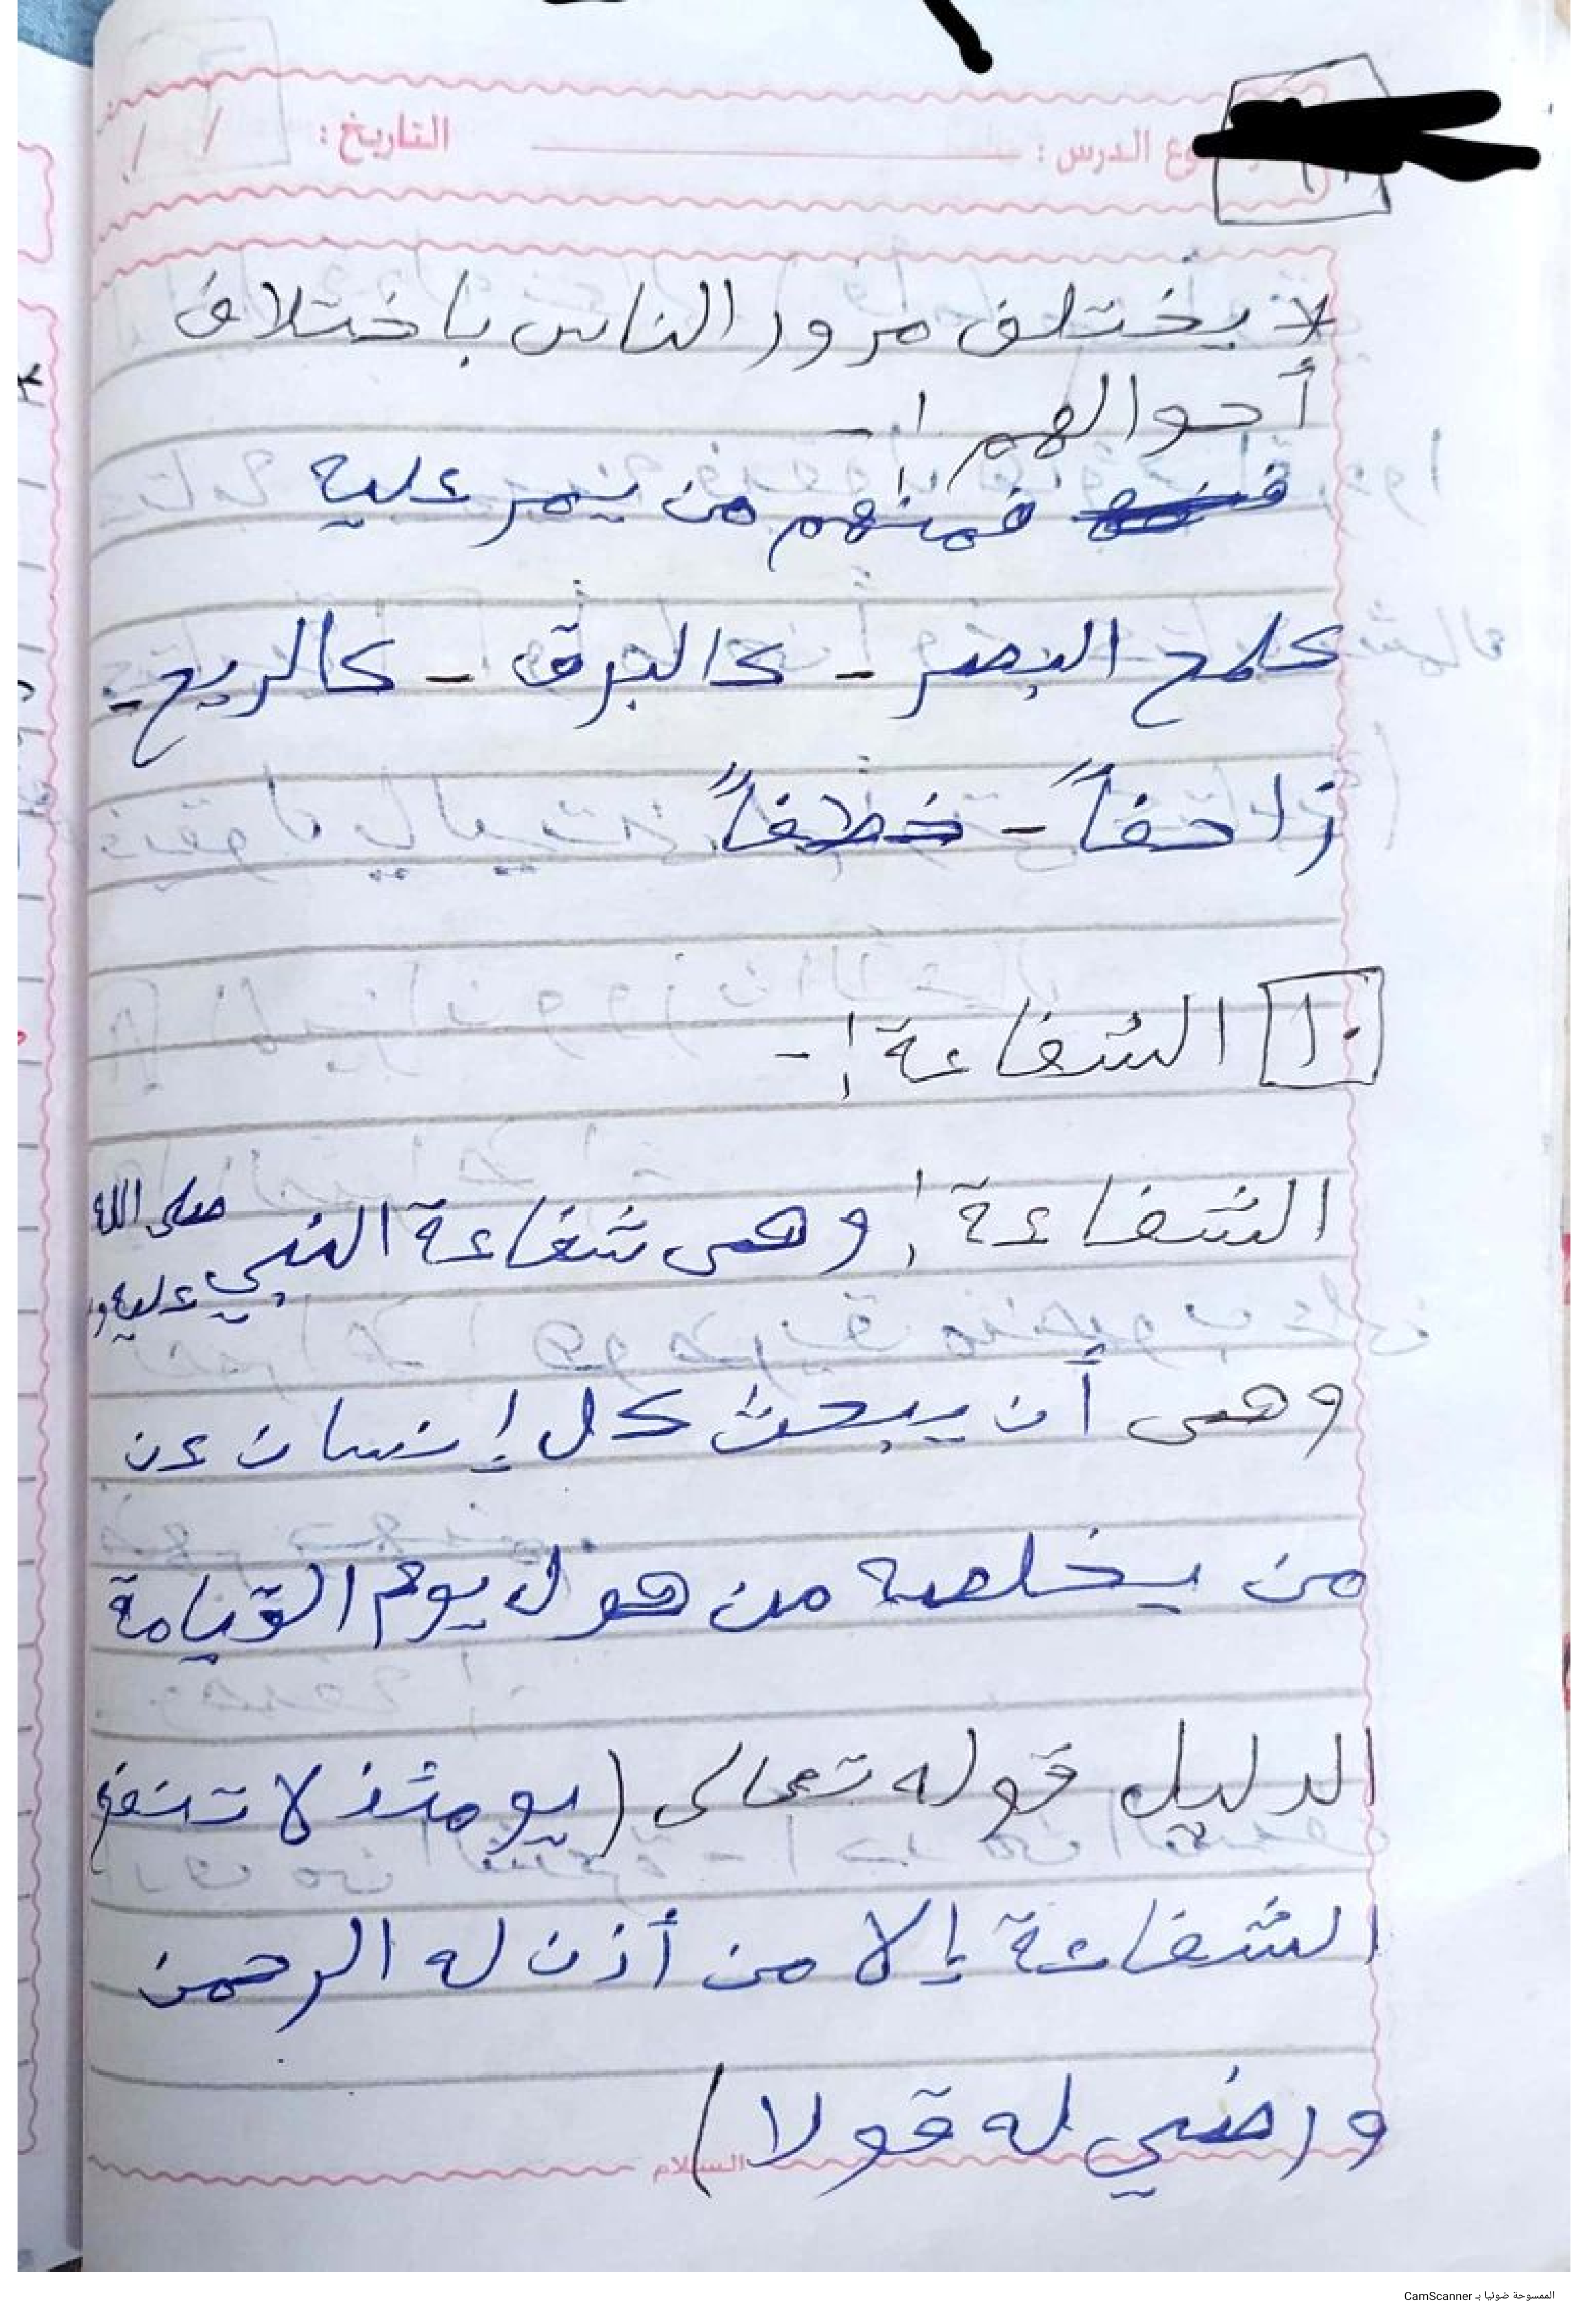 وع الدرس : التاريخ : / /
لا يختلف مرور الناس باختلاف
أحوالهم :-
فمنهم من يمر عليه
كلمح البصر - كالبرق - كالريح -
زاحفاً - خطفاً
١٠ الشفاعة :-
الشفاعة : وهى شفاعة النبي صلى الله
عليه و
وهى أن يبحث كل إنسان عن
من يخلصه من هول يوم القيامة
الدليل قوله تعالى (يومئذ لا تنفع
الشفاعة إلا من أذن له الرحمن
ورضي له قولا)
السلام
الممسوحة ضوئيا بـ CamScanner